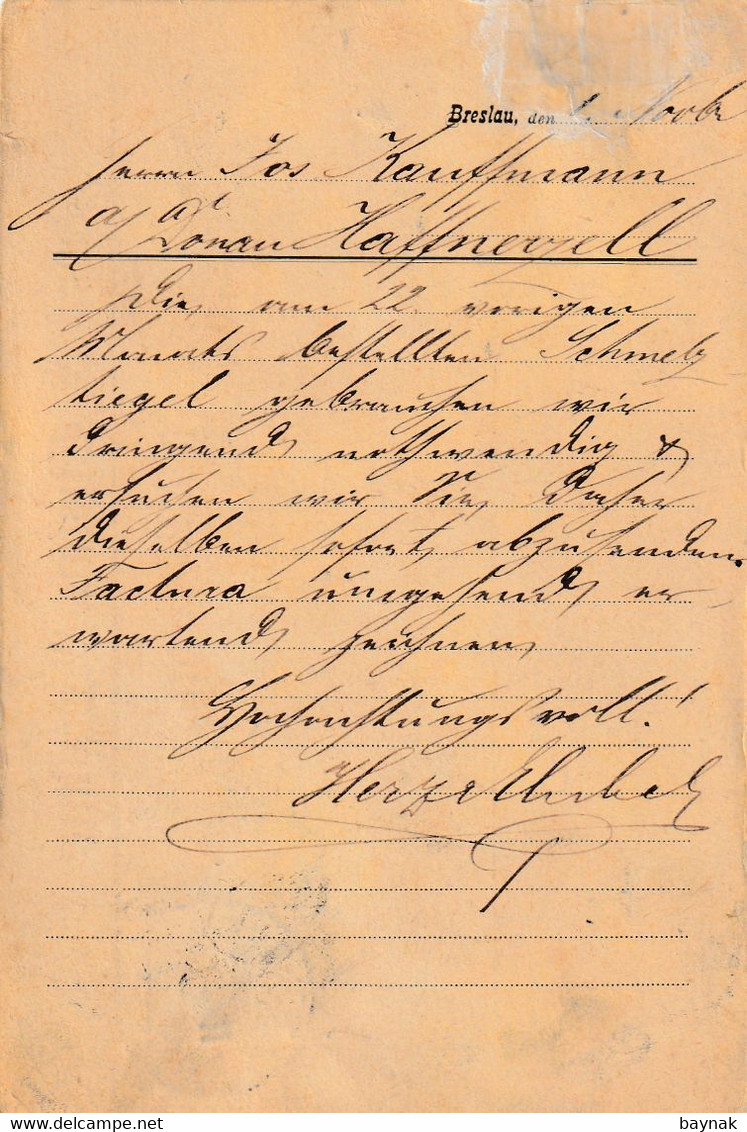 Breslau, den Novbr
Herrn Jos Kauffmann
a/ Donau Haffnerzell
Die am 22. vorigen
Monats bestellten Schmelz
tiegel gebrauchen wir
dringend nothwendig &
ersuchen wir Sie daher
dieselben sofort abzusenden.
Factura umgehend er-
wartend zeichnen
Hochachtungsvoll!
Herz &
delcampe.net
baynak